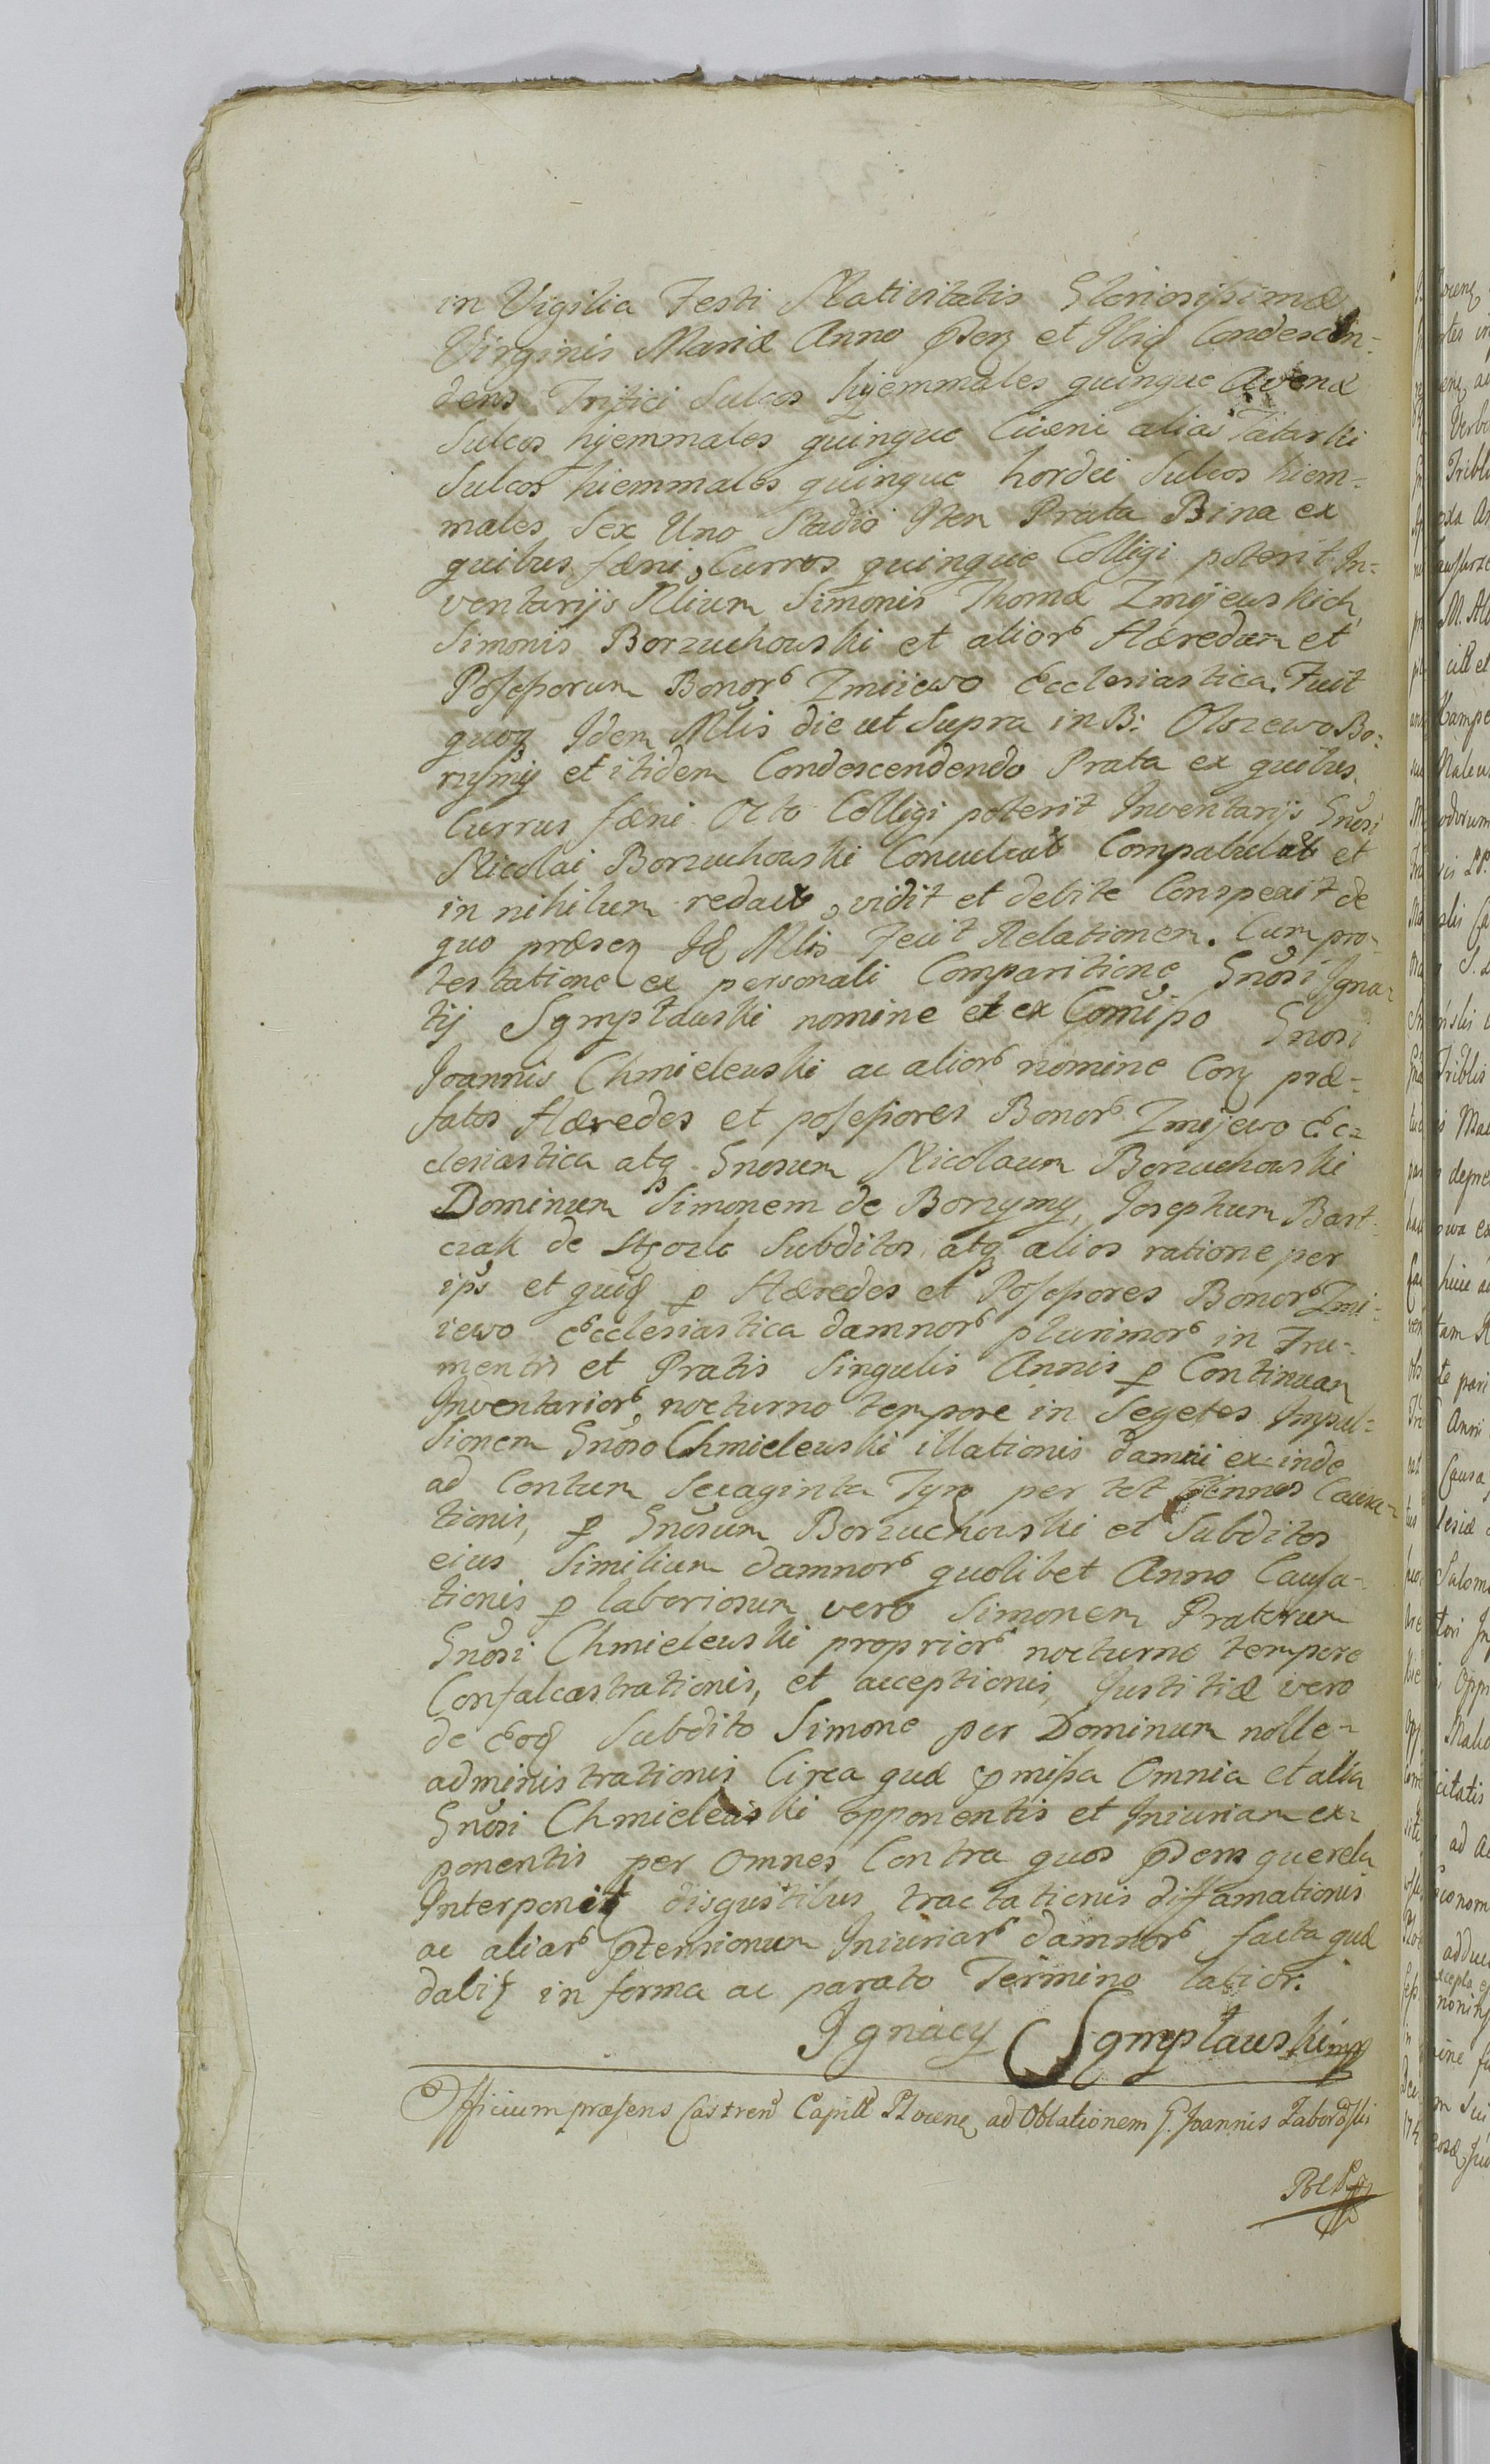 in Vigilia Festi Nativitatis Gloriosissimæ
Virginis Mariæ Anno et Condescen=
dens Tritici Sulcos hyemmales quinque Avenæ
Sulcos hyemmales quinque Ciceris alias Tatarki
Sulcos hiemmales quinque hordei Sulcos hiem=
males Sex Uno Stadio Item Prata Bina ex
quibus fæni Currus quinque Colligi poterit In=
ventarijs Nlium Simonis Thomæ Zmijewskich
Simonis Borzuchowski et alior Hæredum et
Possessorum Bonor Zmiiewo Ecclesiastica. Fuit
quoq Idem Mlis die ut Supra in B: Olszewo Bo=
rzymij et itidem Condescendendo Prata ex quibus
Currus fæni Octo Colligi poterit Inventarijs Gnosi
Nicolai Borzuchowski Conculcat Compabulat et
in nihilum redact, vidit et debite Conspexit de
quo præsen Id Mlis Fecit Relationem. Cum pro-
testatione ex personali Comparitione Gnosi Igna-
tij Sgmptowski nomine et ex Comiso Gnosi
Joannis Chmielewski ac alior nomine Con præ=
fatos Hæredes et possessores Bonor Zmijewo Ec=
clesiastica atq Gnosum Nicolaum Borzuchowski
Dominum Simonem de Borzymy, Josephum Bart-
czak de Subditos atq alios ratione per
ips et quid p Hæredes et Possessores Bonor Zmi-
iewo Ecclesiastica damnor plurimor in Fru-
mentis et Pratis Singulis Annis p Continuam
Inventarior nocturno tempore in Segetes Impul=
sionem Gnoso Chmielewski illationis damni ex inde
ad Centum Sexaginta Tynf per tot Causa-
tionis, p Gnosum Borzuchowski et Subditos
eius Similium damnor quolibet Anno Causa-
tionis p laboriosum vero Simonem Pratorum
Gnosi Chmielewski proprior nocturno tempore
Confalcastrationis, et acceptionis, Justitiæ vero
de Eod Subdito Simone per Dominum nolle-
administrationis Circa quæ pmissa Omnia et alia
Gnosi Chmielewski opponentis et Iniuriam ex=
ponentis per Omnes Contra quos querela
Interponit disgustibus tractationis diffamationis
ac aliar ptensionum Iniuriar damnor facta quæ
dabit in forma ac parato Termino latior.
Ignacy Sgmptowski mp
Officium præsens Castren Capitl Plocen ad Oblationem G. Joannis Zaborowski